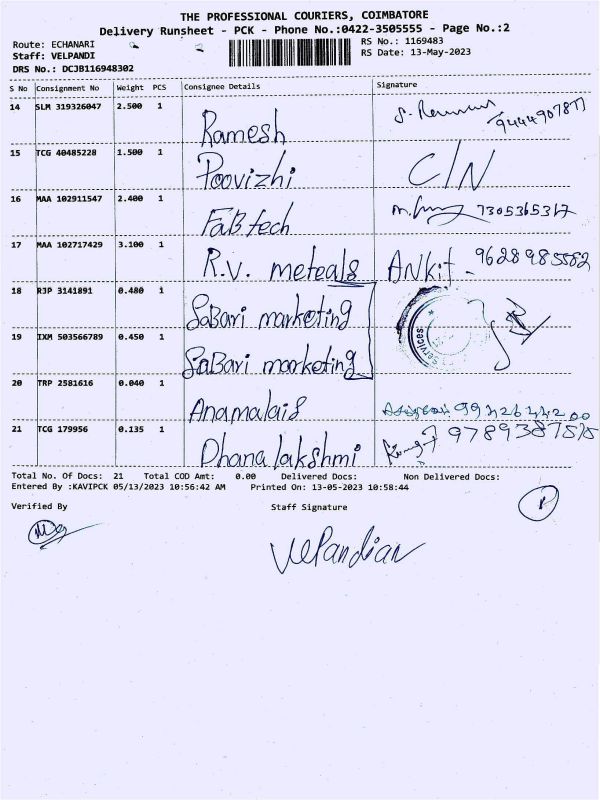 THE PROFESSIONAL COURIERS, COIMBATORE
Delivery Runsheet - PCK - Phone No.:0422-3505555 - Page No.:2
Route: ECHANARI RS No.: 1169483
Staff: VELPANDI RS Date: 13-May-2023
DRS No.: DCJB116948302
S No Consignment No Weight PCS Consignee Details Signature
14 SLM 319326047 2.500 1 Ramesh
15 TCG 40485228 1.500 1 Poovizhi C/N
16 MAA 102911547 2.400 1 FaB tech 7305365317
17 MAA 102717429 3.100 1 R.V. meteals ANkit - 9628985582
18 RJP 3141891 0.480 1 SaBari marketing
services
19 IXM 503566789 0.450 1 SaBari marketing
20 TRP 2581616 0.040 1 Anamalais
21 TCG 179956 0.135 1 Dhana lakshmi
Total No. Of Docs: 21 Total COD Amt: 0.00 Delivered Docs: Non Delivered Docs:
Entered By :KAVIPCK 05/13/2023 10:56:42 AM Printed On: 13-05-2023 10:58:44
Verified By Staff Signature
VelPandian